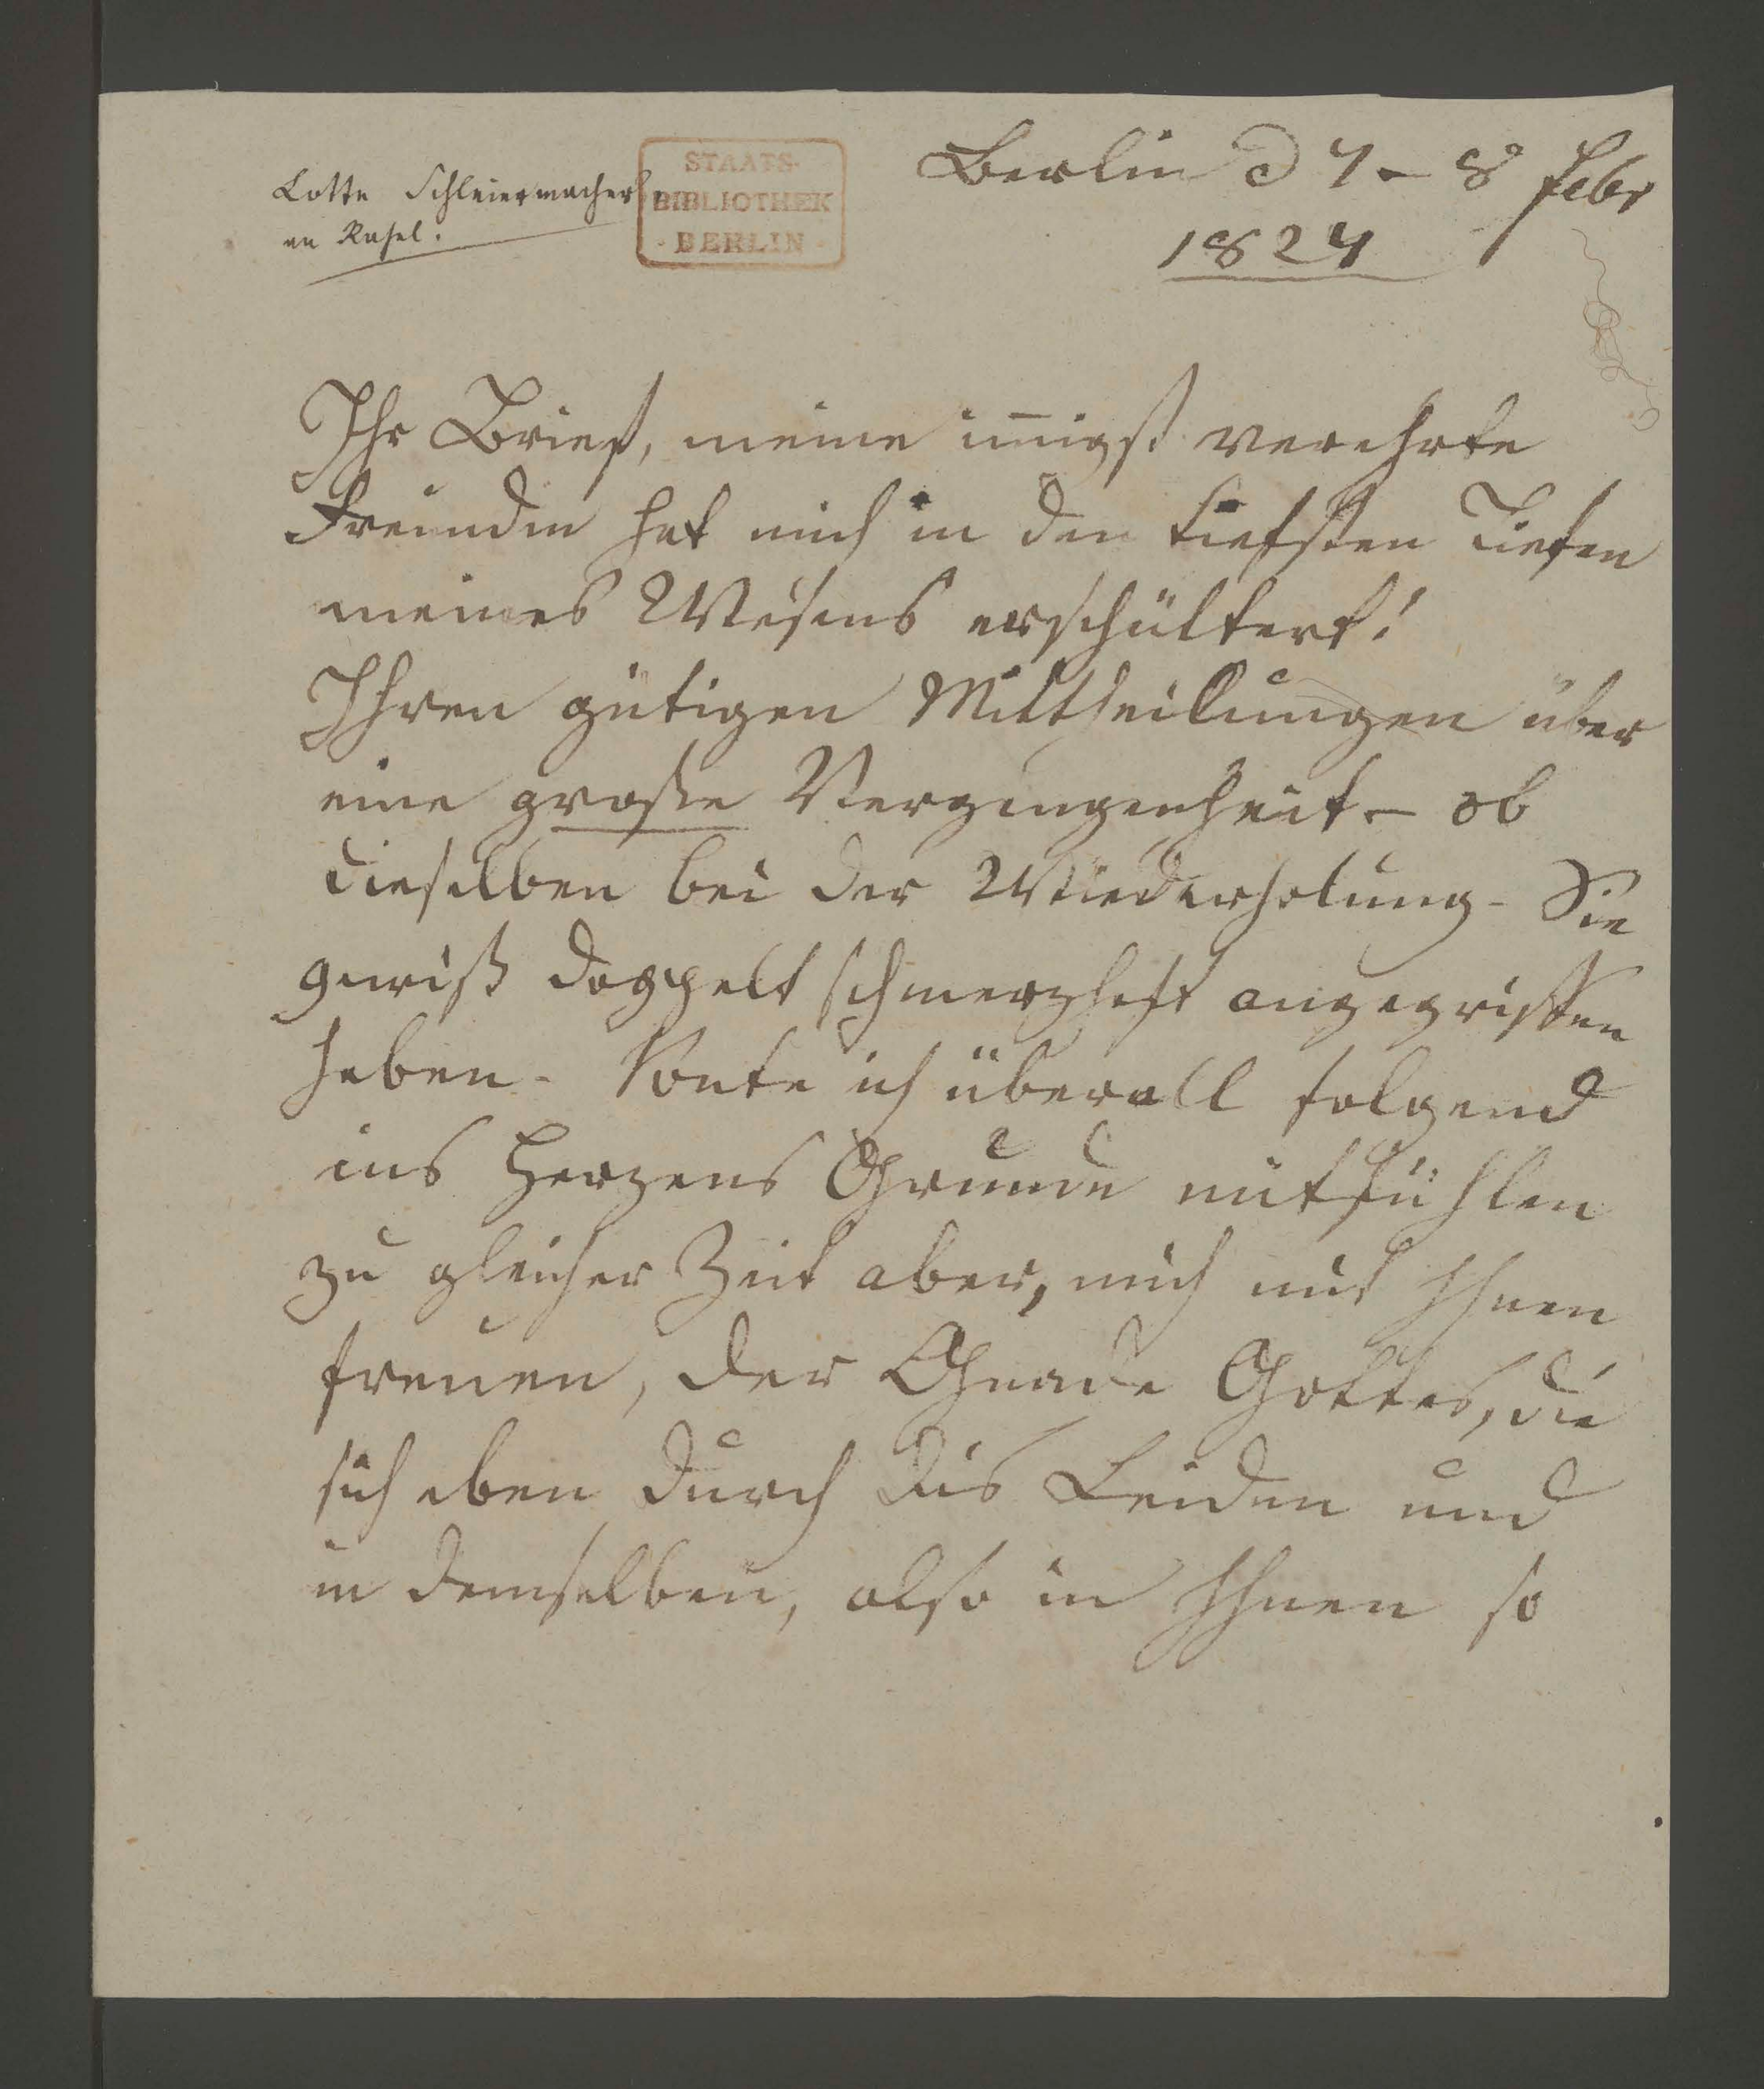 Lotte Schleiermacher
an Rahel.
STAATS-
BIBLIOTHEK
· BERLIN ·
Berlin d 7 – 8 Febr
1824
Ihr Brief, meine iñigst verehrte
Freundin hat mich in den tiefsten Tiefen
meines Wesens erschüttert!
Ihren gütigen Mittheilungen über
eine große Vergangenheit – ob
dieselben bei der Wiederholung – Sie
gewiß doppelt schmerzhaft angegriffen
haben – konte ich überall folgend
ins Herzens Grunde mitfühlen
zu gleicher Zeit aber, mich mit Ihnen
freuen, der Gnade Gottes, die
sich eben durch dis Leiden und
in demselben, also in Ihnen so